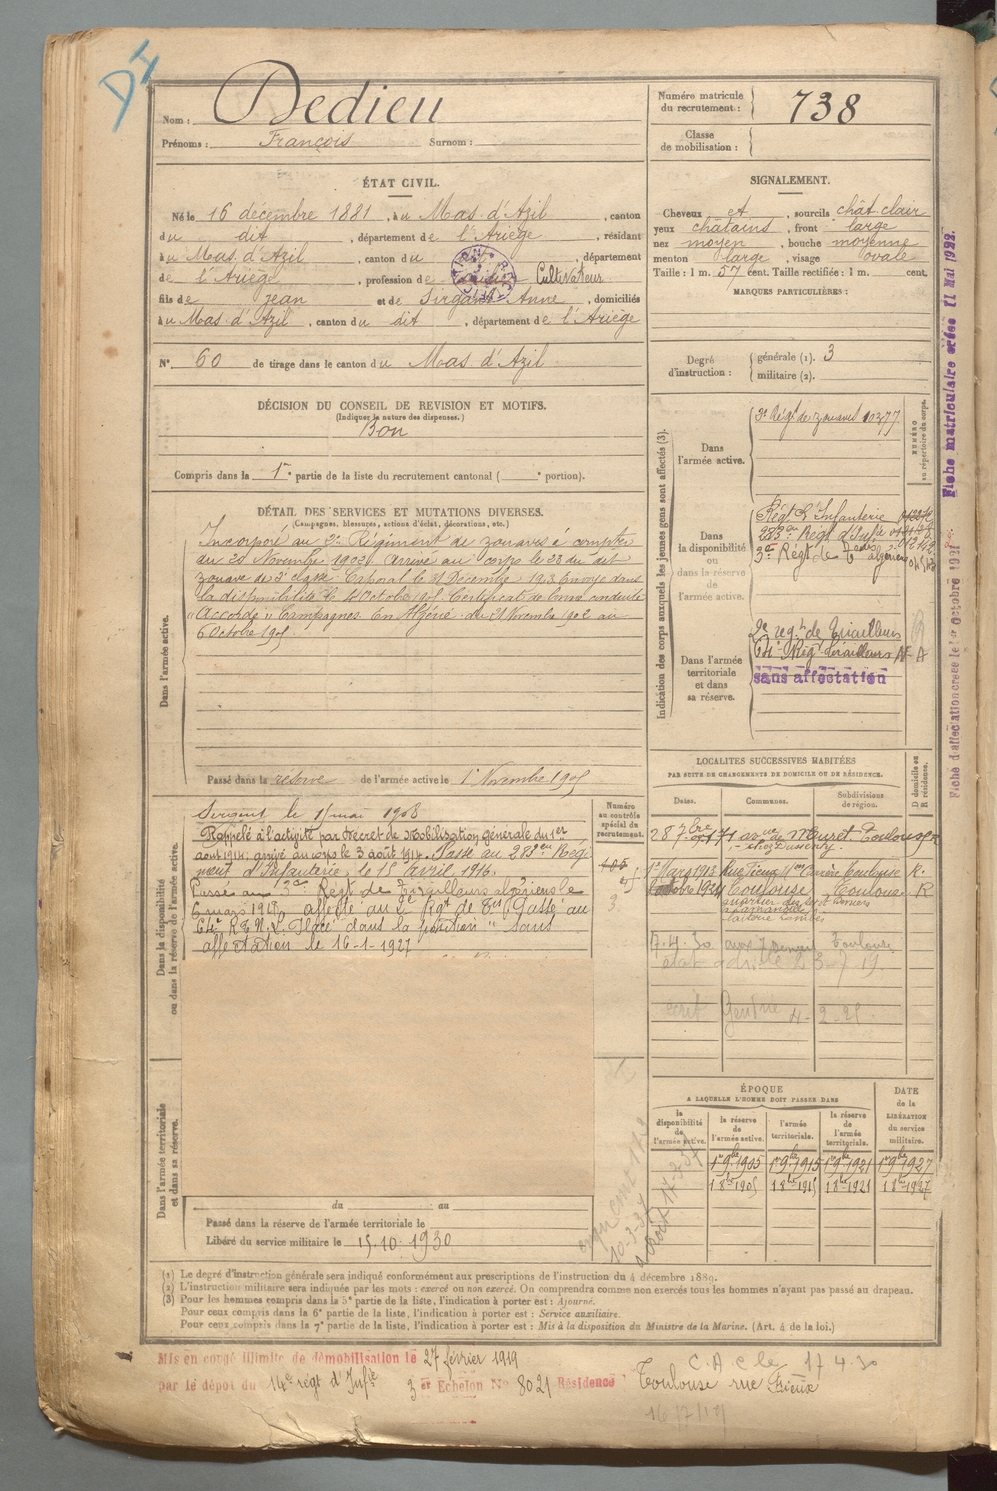 DI
Nom : Dedieu
Prénoms : François Surnom :
Numéro matricule du recrutement : 738
Classe de mobilisation :
ÉTAT CIVIL.
Né le 16 décembre 1881, à u Mas d'Azil, canton
du dit, département de l'Ariège, résidant
à u Mas d'Azil, canton du , département
de l'Ariège, profession de Cultivateur
fils de Jean et de Sirgant Anne, domiciliés
à u Mas d'Azil, canton du dit, département de l'Ariège
N° 60 de tirage dans le canton du Mas d'Azil
SIGNALEMENT.
Cheveux et, sourcils chât. clair
yeux châtains, front large
nez moyen, bouche moyenne
menton large, visage ovale
Taille : 1 m. 57 cent. Taille rectifiée : 1 m. cent.
MARQUES PARTICULIÈRES :
Degré d'instruction : générale (1). 3
militaire (2).
DÉCISION DU CONSEIL DE REVISION ET MOTIFS.
(Indiquer la nature des dispenses.)
Bon
Compris dans la 1re partie de la liste du recrutement cantonal ( portion).
DÉTAIL DES SERVICES ET MUTATIONS DIVERSES.
(Campagnes, blessures, actions d'éclat, décorations, etc.)
Dans l'armée active.
Incorporé au 3e Régiment de zouaves à compter
du 20 Novembre 1902. Arrivé au corps le 23 du dit
zouave de 2e classe. Caporal le 31 Décembre 1903. Envoyé dans
la disponibilité le Octobre 1905. Certificat de bonne conduite
"Accordé" Campagnes. En Algérie du 21 Novembre 1902 au
6 Octobre 1905.
Passé dans la réserve de l'armée active le 1er Novembre 1905
Indication des corps auxquels les jeunes gens sont affectés (3).
NUMÉRO au répertoire du corps.
Dans l'armée active.
3e Régt de zouaves 10377
Dans la disponibilité ou dans la réserve de l'armée active.
Régt d'Infanterie
283e Régt d'Infie
Régt de algériens
Dans l'armée territoriale et dans sa réserve.
2e regt de tirailleurs
Régt tirailleurs
sans affectation
Fiche matriculaire créée 11 Mai 1922.
Fiche d'affectation créée le 1er Octobre
Dans la disponibilité ou dans la réserve de l'armée active.
Numéro au contrôle spécial du recrutement.
Sergent le 1 mai 1908
Rappelé à l'activité par décret de Mobilisation générale du 1er
août 1914; arrivé au corps le 3 août 1914. Passé au 283eme Régi-
ment d'Infanterie, le 15 avril 1916.
Passé au Régt de Tirailleurs algériens le
6 mars affecté au 2e Rgt de Passé au
R.T.N.A. Placé dans la position "sans
affectation le 16-1-1927
LOCALITES SUCCESSIVES HABITÉES
PAR SUITE DE CHANGEMENTS DE DOMICILE OU DE RÉSIDENCE.
Dates. Communes. Subdivisions de région. D domicile ou R résidence.
28 7bre 71 avue de Muret Toulouse R
chez
1er Mars 1913 Rue Toulouse R.
Toulouse Toulouse R
7.4.30 Toulouse
ÉPOQUE
A LAQUELLE L'HOMME DOIT PASSER DANS
la disponibilité de l'armée active.
la réserve de l'armée active.
l'armée territoriale.
la réserve de l'armée territoriale.
DATE de la LIBÉRATION du service militaire.
1er 9bre 1905 1er 9bre 1915 1er 9bre 1921 1er 9bre 1927
1 8bre 1905 1 8bre 1915 1 8bre 1921 1 8bre 1927
Dans l'armée territoriale et dans sa réserve.
du au
Passé dans la réserve de l'armée territoriale le
Libéré du service militaire le 15.10.1930
(1) Le degré d'instruction générale sera indiqué conformément aux prescriptions de l'instruction du 4 décembre 1889.
(2) L'instruction militaire sera indiquée par les mots : exercé ou non exercé. On comprendra comme non exercés tous les hommes n'ayant pas passé au drapeau.
(3) Pour les hommes compris dans la 5e partie de la liste, l'indication à porter est : Ajourné.
Pour ceux compris dans la 6e partie de la liste, l'indication à porter est : Service auxiliaire.
Pour ceux compris dans la 7e partie de la liste, l'indication à porter est : Mis à la disposition du Ministre de la Marine. (Art. 4 de la loi.)
Mis en congé illimité de démobilisation le 27 février 1919
par le dépôt du 14e régt d'Infie 3er Echelon N° 8021 Résidence Toulouse rue
C.A.C le 17 4.30